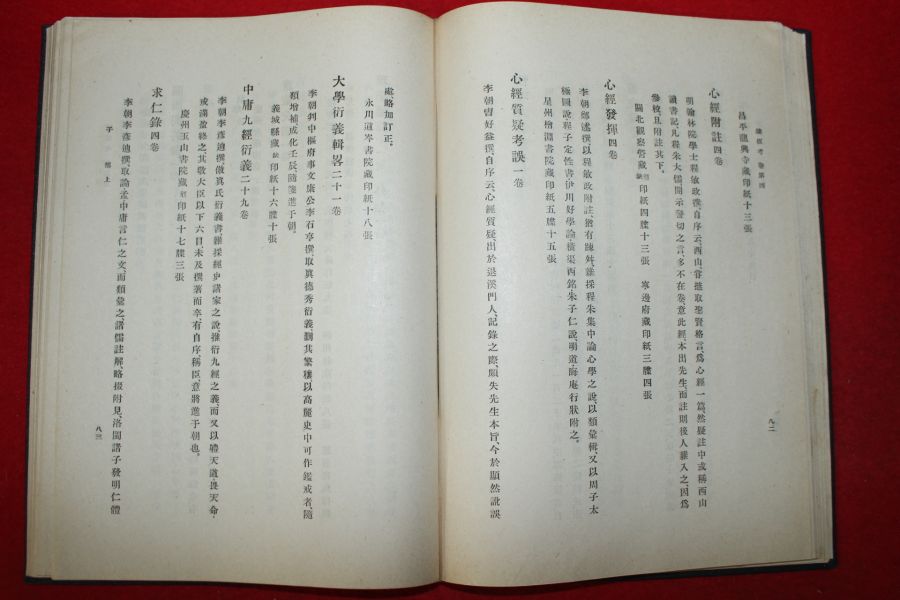 鏤板考 卷第四
昌平龍興寺藏印紙十三張
心經附註四卷
明翰林院學士程敏政撰自序云、西山嘗進取聖賢格言、爲心經一篇、然疑註中或稱西山
讀書記、凡程朱大儒開示警切之言、多不在卷、意此經本出先生、而註則後人雜入之、因爲
參校、且附註其下。
關北觀察營藏 印紙四牒十三張 寧邊府藏印紙三牒四張
心經發揮四卷
李朝鄭逑撰、以程敏政附註、猶有踈舛、雜採程朱集中論心學之說、以類彙輯、又以周子太
極圖說程子定性書伊川好學論橫渠西銘朱子仁說、明道晦庵行狀附之。
星州檜淵書院藏印紙五牒十五張
心經質疑考誤一卷
李朝曺好益撰自序云、心經質疑出於退溪門人、記錄之際、頗失先生本旨、今於顯然訛誤
八二
處略加訂正。
永川道岑書院藏印紙十八張
大學衍義輯畧二十一卷
李朝判中樞府事文康公李石亨撰、取眞德秀衍義、刪其繁穰、以高麗史中可作鑑戒者、隨
類增補、成化壬辰、隨箋進于朝
義城縣藏 印紙十六牒十張
中庸九經衍義二十九卷
李朝李彥迪撰、倣眞氏衍義書、雜採經史諸家之說、推衍九經之義、而又以體天道畏天命
戒滿盈終之、其敬大臣以下六目、未及撰著而卒、有自序、稱臣、意將進于朝也。
慶州玉山書院藏 印紙十七牒三張
求仁錄四卷
李朝李彥迪撰、取論孟中庸言仁之文、而類彙之、諸儒註解、略掇附見、洛閩諸子發明仁體
子部上
八三